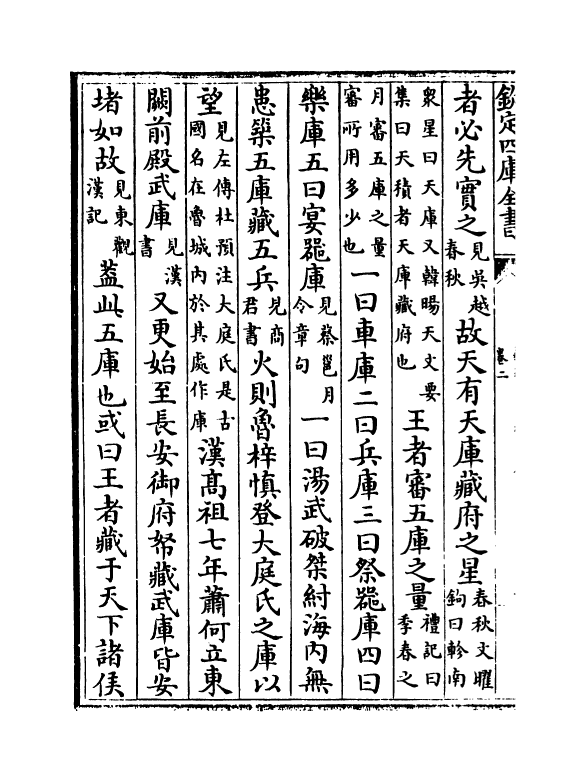 欽定四庫全書 卷二
者必先實之見吳越春秋故天有天庫藏府之星春秋文曜鉤曰軫南
衆星曰天庫又韓暘天文要集曰天積者天庫藏府也王者審五庫之量禮記曰季春之
月審五庫之量審所用多少也一曰車庫二曰兵庫三曰祭噐庫四曰
樂庫五曰宴噐庫見蔡邕月令章句一曰湯武破桀紂海內無
患築五庫藏五兵見商君書火則魯梓慎登大庭氏之庫以
望見左傳杜預注大庭氏是古國名在魯城內於其處作庫漢髙祖七年蕭何立東
闕前殿武庫見漢書又更始至長安御府帑藏武庫皆安
堵如故見東觀漢記葢此五庫也或曰王者藏于天下諸侯